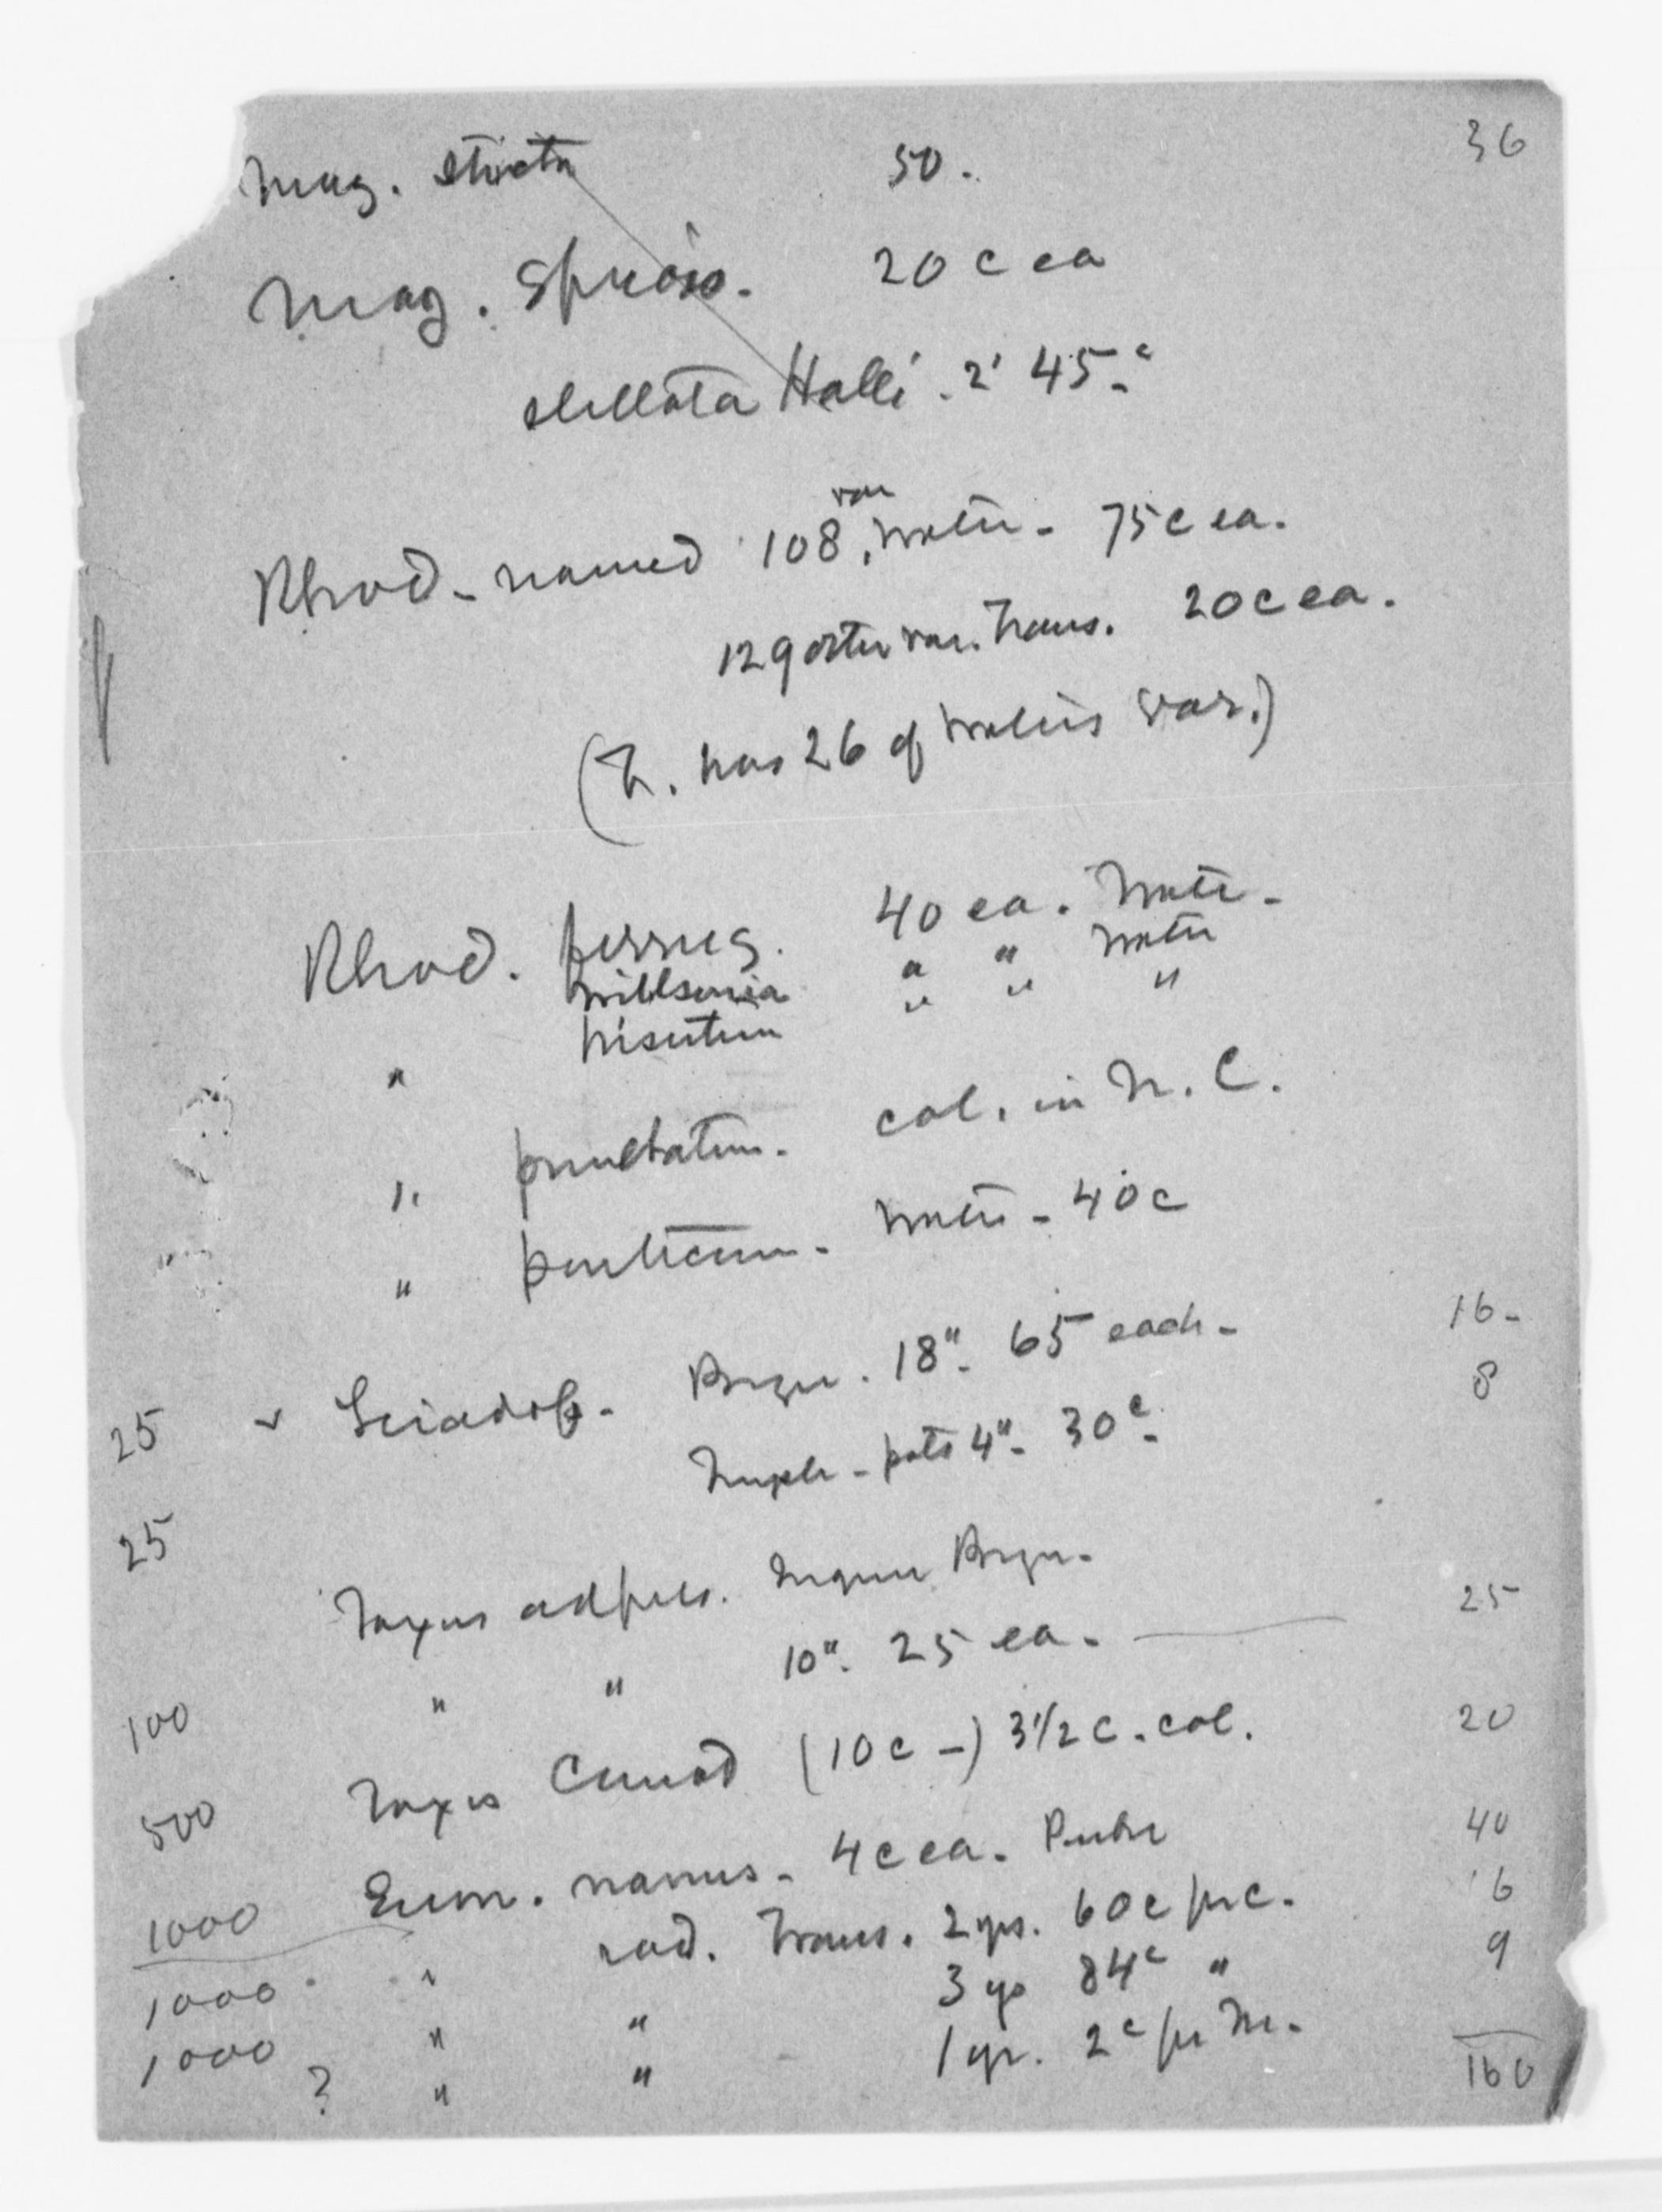 Mag. stricta 50. 36
Mag. Specios. 20 c ea
stellata Halli. 2' 45c
var
Rhod - named 108, 75c ea.
129 other var. Trans. 20c ea.
( has 26 of var.)
Rhod. ferrug. 40 ea.
Willsonia " "
" hirsutum " " "
" punctatum. col. in N. C.
" ponticum. - 40c
25 ✓ Sciadop. 18". 65 each - 16-
25 pots 4". 30c 8
Taxus adpres.
100 " " 10". 25 ea. 25
500 Taxus Canad (10c -) 3 1/2 c. col. 20
1000 Euon. nanus - 4c ea. 40
1000 " rad. Trans. 2 yrs. 60c per c. 6
1000 " " 3 yr 84c " 9
? " " 1 yr. 2c per M.
160